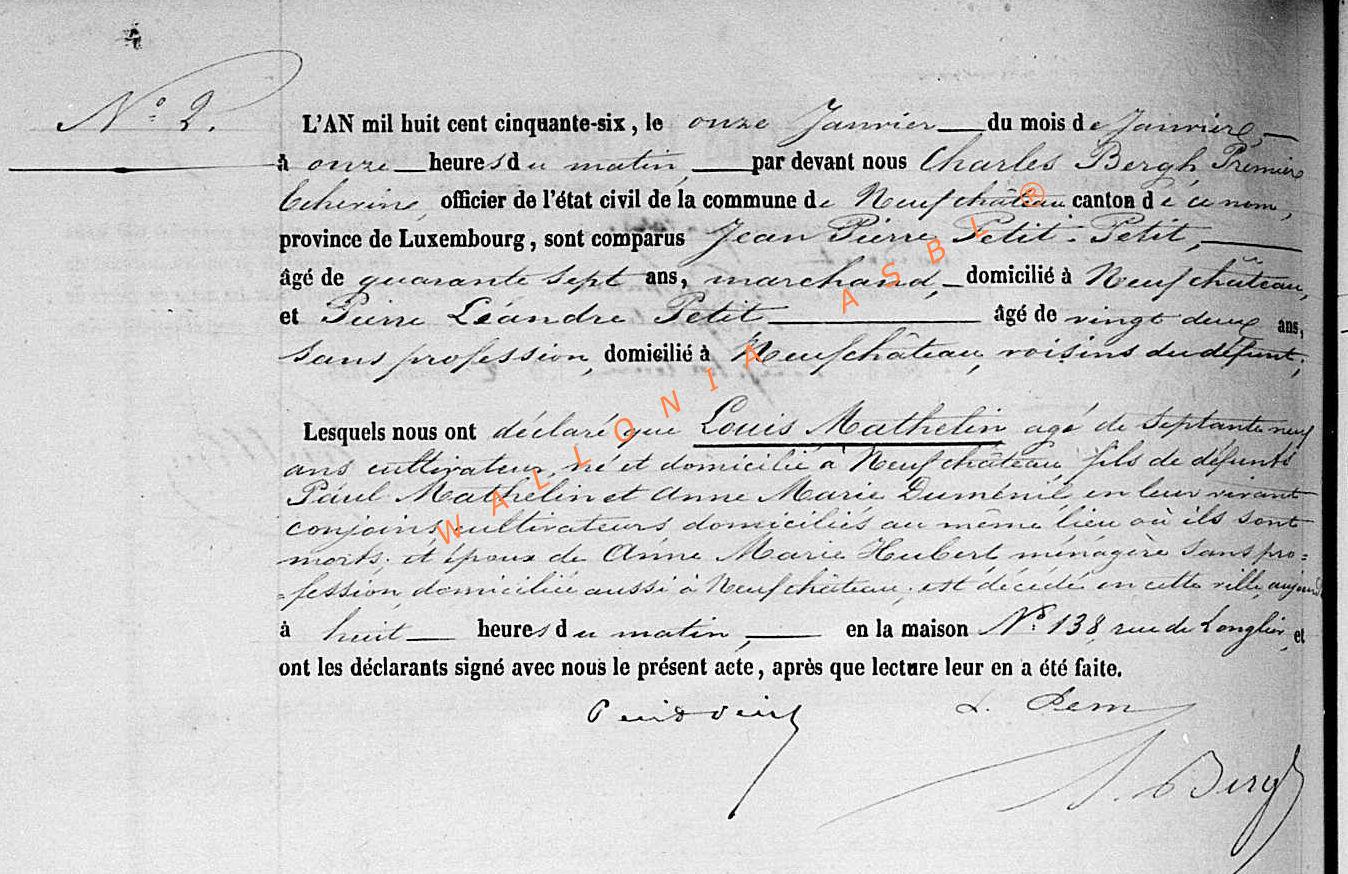 N° 2.
L'AN mil huit cent cinquante-six, le onze Janvier du mois de Janvier,
à onze heures du matin, par devant nous Charles Bergh Premier
Echevin, officier de l'état civil de la commune de Neufchâteau canton de ce nom,
province de Luxembourg, sont comparus Jean Pierre Petit-Petit,
âgé de quarante sept ans, marchand, domicilié à Neufchâteau,
et Pierre Léandre Petit âgé de vingt deux ans,
sans profession, domicilié à Neufchâteau, voisins du défunt,
Lesquels nous ont déclaré que Louis Mathelin agé de septante neuf
ans cultivateur, né et domicilié à Neufchâteau, fils de défunts
Paul Mathelin et Anne Marie Duménil, en leur vivant
conjoins cultivateurs domiciliés au même lieu où ils sont
morts, et époux de Anne Marie Hubert ménagère sans pro=
=fession, domiciliée aussi à Neufchâteau, est décédé en cette ville,
à huit heures du matin, en la maison N° 138, rue de Longlier, et
ont les déclarants signé avec nous le présent acte, après que lecture leur en a été faite.
L.
Bergh
WALLONIA ASBL ®